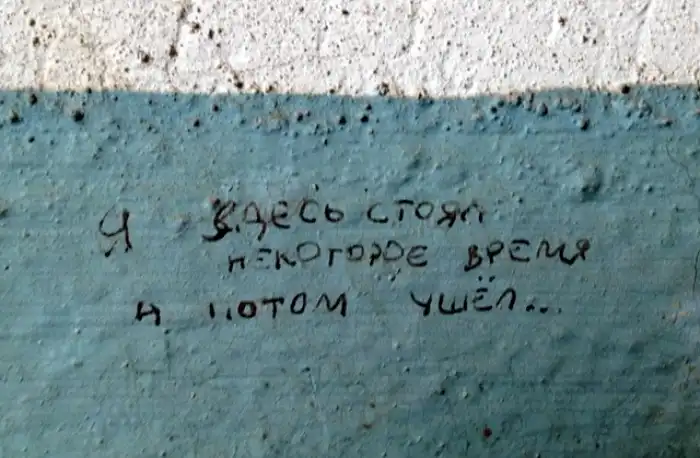 Я ЗДЕСЬ СТОЯЛ
НЕКОТОРОЕ ВРЕМЯ
И ПОТОМ УШЁЛ...